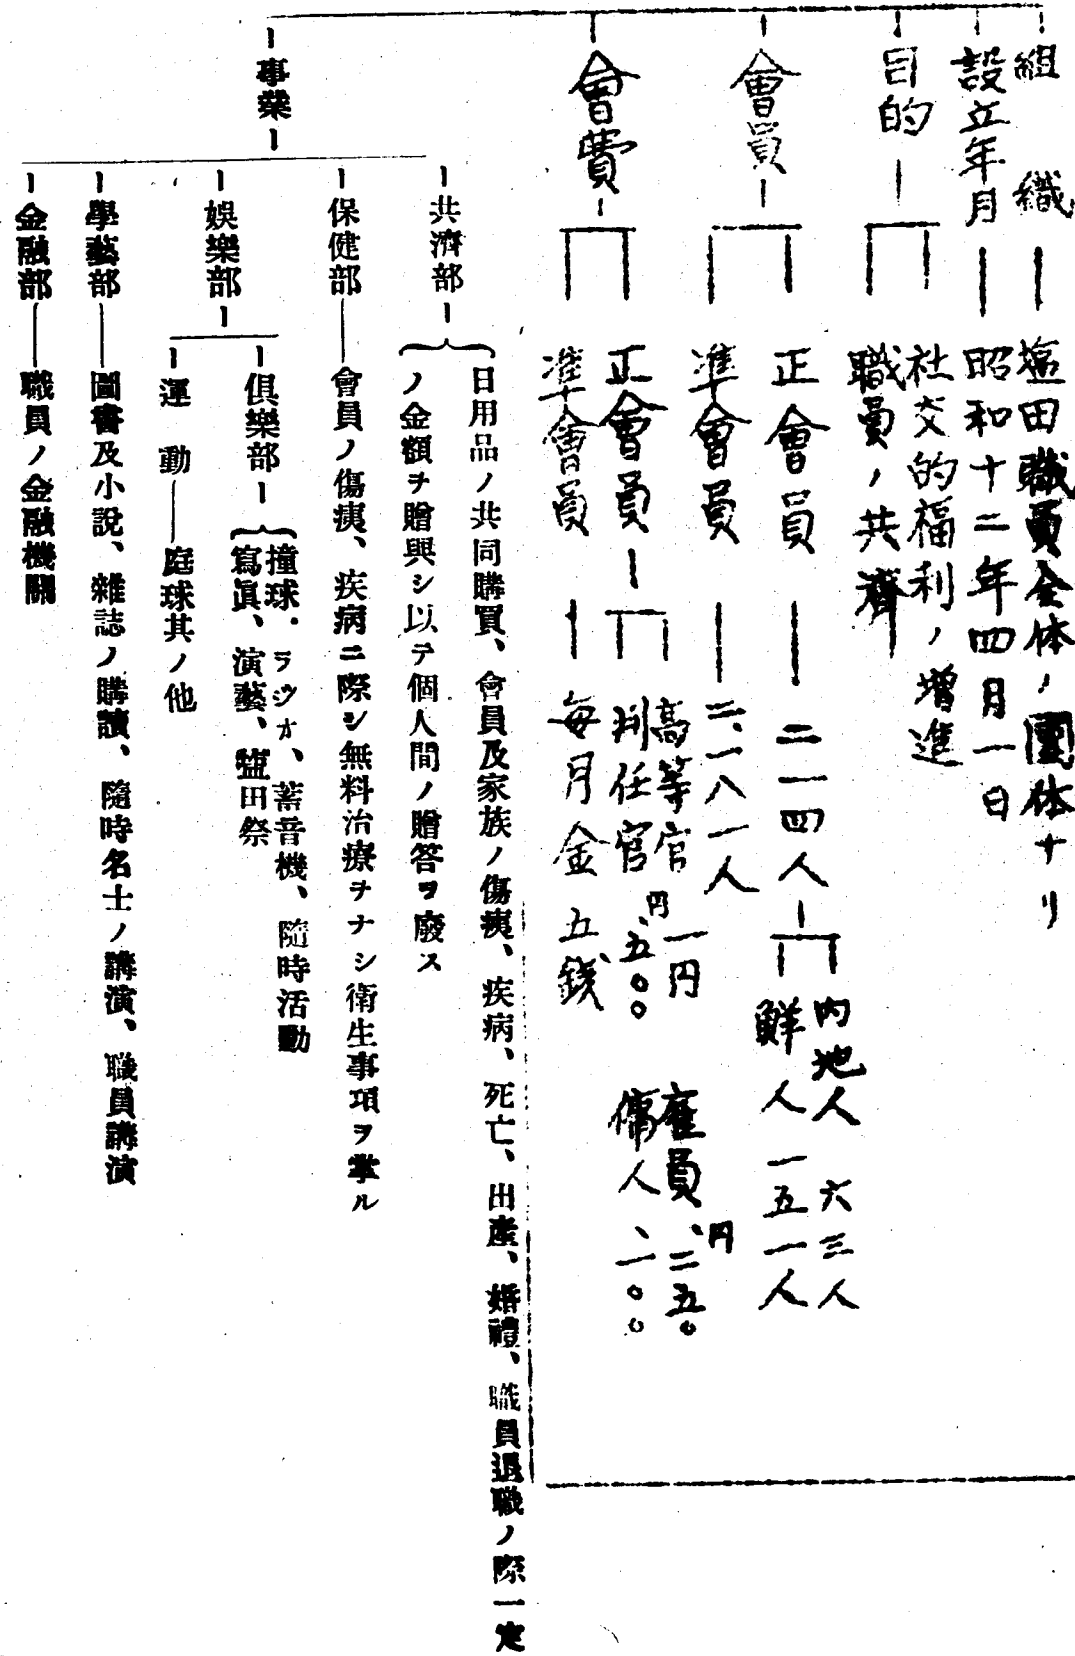 組織
塩田職員全体ノ團体ナリ
設立年月
昭和十二年四月一日
目的
社交的福利ノ増進
職員ノ共濟
會員
正會員
二一四人
內地人 六三人
鮮人 一五一人
準會員
二、一八一人
會費
正會員
高等官 一円
雇員 、二五〇円
判任官 、五〇〇円
傭人 、一〇〇
準會員
每月金五錢
事業
共濟部
日用品ノ共同購買、會員及家族ノ傷痍、疾病、死亡、出產、婚禮、職員退職ノ際一定
ノ金額ヲ贈與シ以テ個人間ノ贈答ヲ廢ス
保健部
會員ノ傷痍、疾病ニ際シ無料治療ヲナシ衛生事項ヲ掌ル
娛樂部
俱樂部
撞球、ラジオ、蓄音機、隨時活動
寫眞、演藝、鹽田祭
運動
庭球其ノ他
學藝部
圖書及小說、雜誌ノ購讀、隨時名士ノ講演、職員講演
金融部
職員ノ金融機關